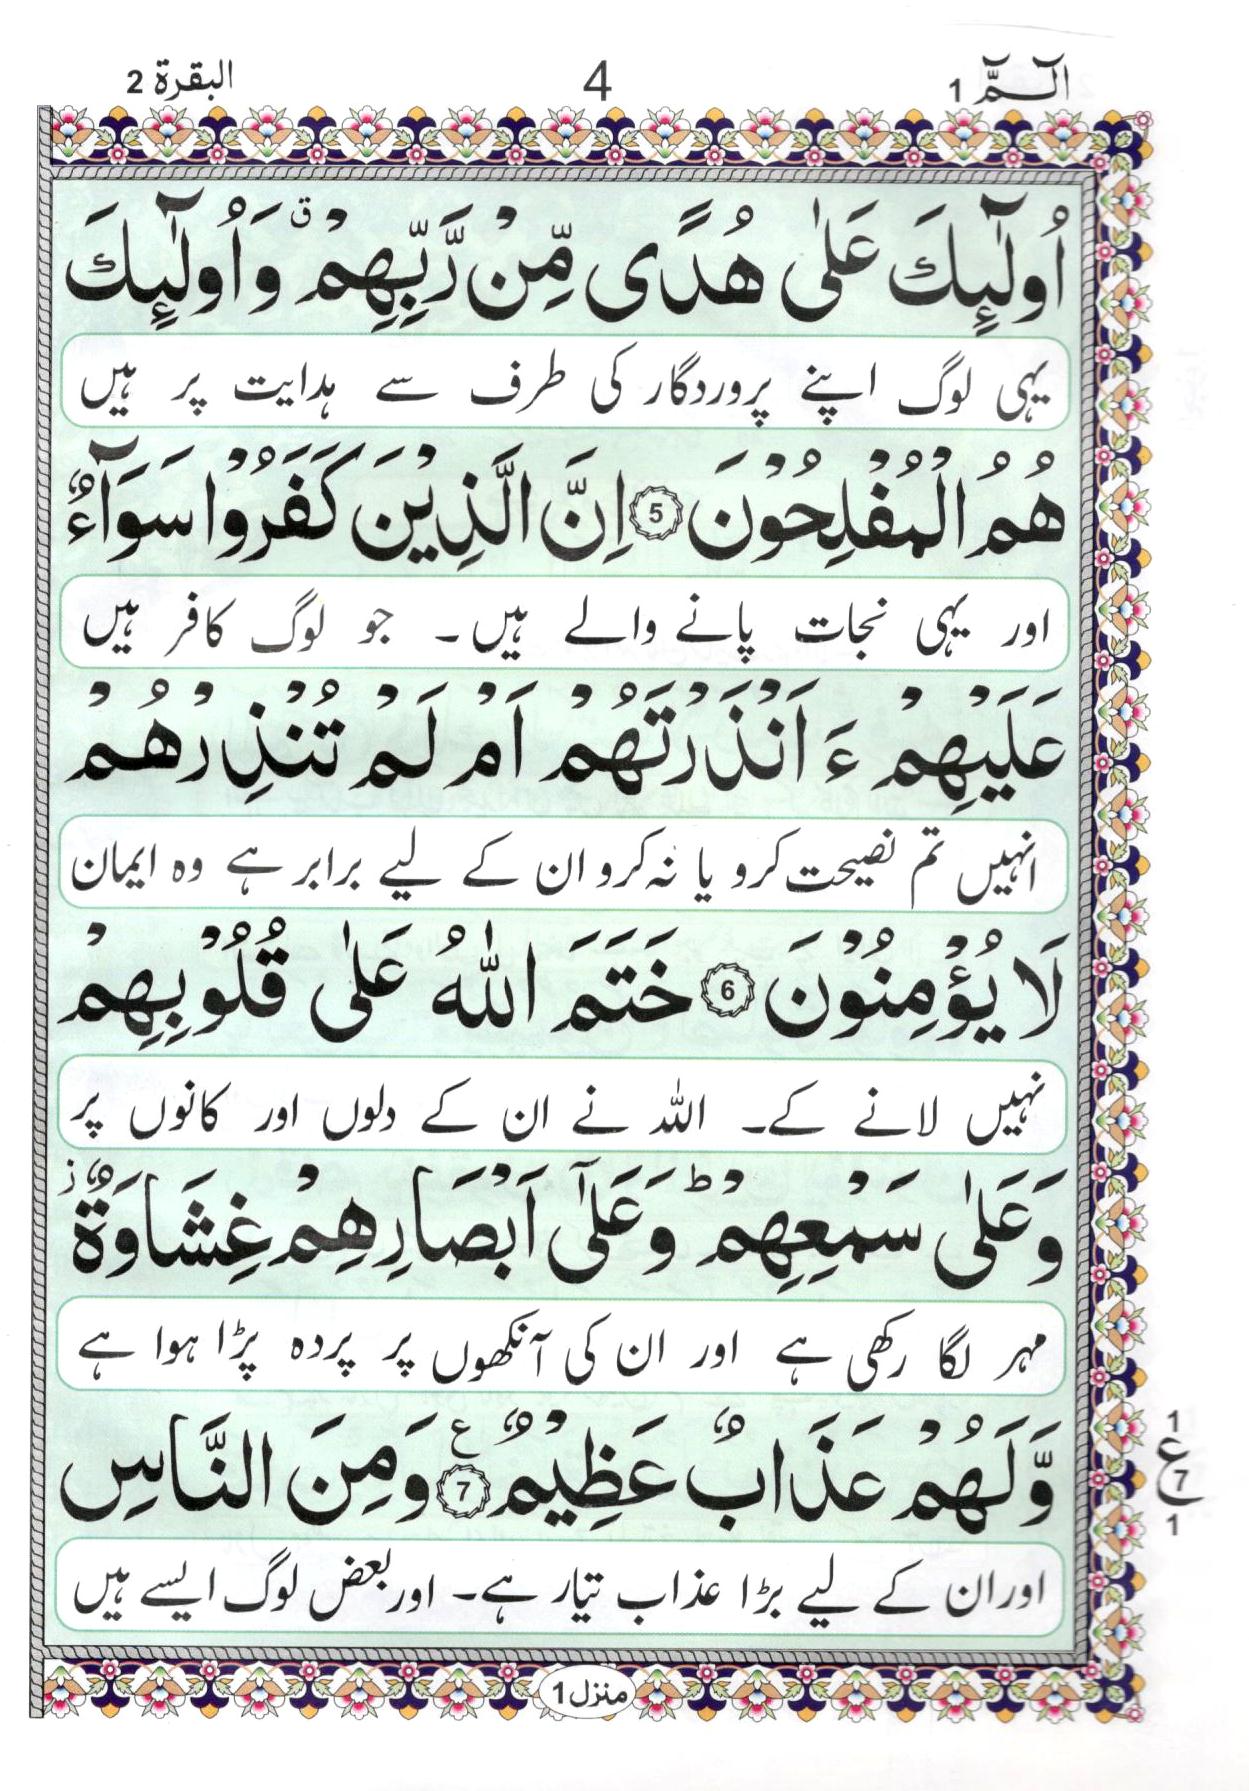 الٓمّٓ 1
4
البقرة 2
اُولٰٓئِكَ عَلٰى هُدًى مِّنْ رَّبِّهِمْ ۗ وَاُولٰٓئِكَ
یہی لوگ اپنے پروردگار کی طرف سے ہدایت پر ہیں
هُمُ الْمُفْلِحُوْنَ 5 اِنَّ الَّذِيْنَ كَفَرُوْا سَوَآءٌ
اور یہی نجات پانے والے ہیں۔ جو لوگ کافر ہیں
عَلَيْهِمْ ءَ اَنْذَرْتَهُمْ اَمْ لَمْ تُنْذِرْهُمْ
انہیں تم نصیحت کرو یا نہ کرو ان کے لیے برابر ہے وہ ایمان
لَا يُؤْمِنُوْنَ 6 خَتَمَ اللّٰهُ عَلٰى قُلُوْبِهِمْ
نہیں لانے کے۔ اللہ نے ان کے دلوں اور کانوں پر
وَعَلٰى سَمْعِهِمْ ؕ وَعَلٰٓى اَبْصَارِهِمْ غِشَاوَةٌ ز
مہر لگا رکھی ہے اور ان کی آنکھوں پر پردہ پڑا ہوا ہے
وَّلَهُمْ عَذَابٌ عَظِيْمٌ ع 7 وَمِنَ النَّاسِ
اور ان کے لیے بڑا عذاب تیار ہے۔ اور بعض لوگ ایسے ہیں
1
ع 7
1
منزل 1